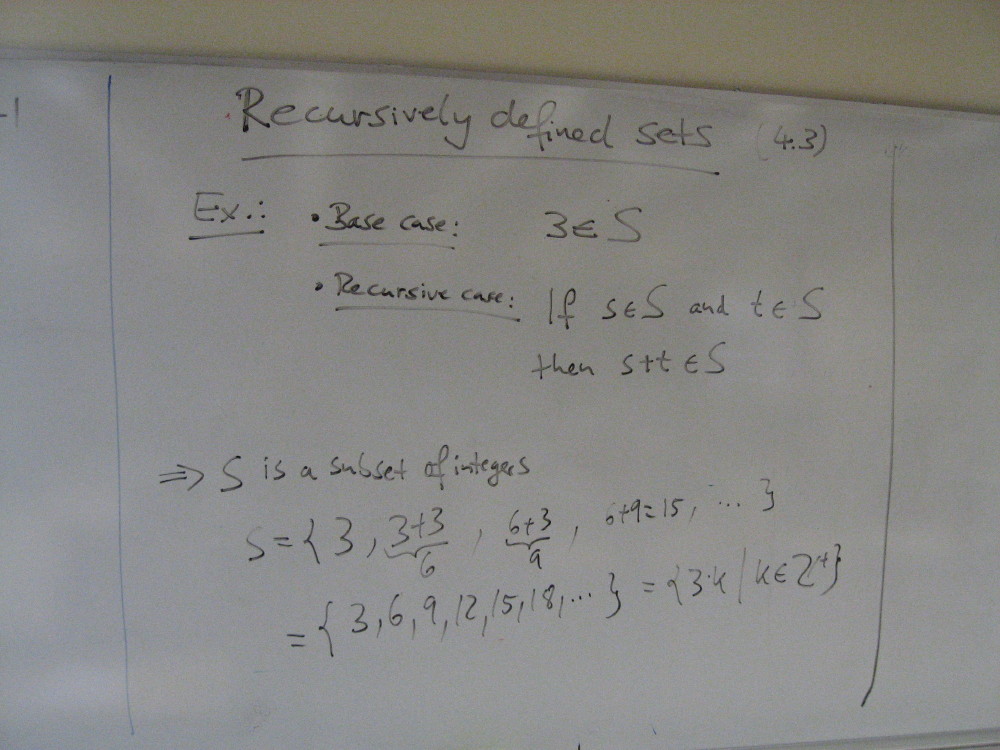 -1
Recursively defined sets (4.3)
Ex.: • Base case: 3 ∈ S
• Recursive case: If s ∈ S and t ∈ S
then s+t ∈ S
⇒ S is a subset of integers
S = { 3, 3+3, 6+3, 6+9=15, ... }
6 9
= { 3, 6, 9, 12, 15, 18, ... } = {3·k | k ∈ Z⁺}